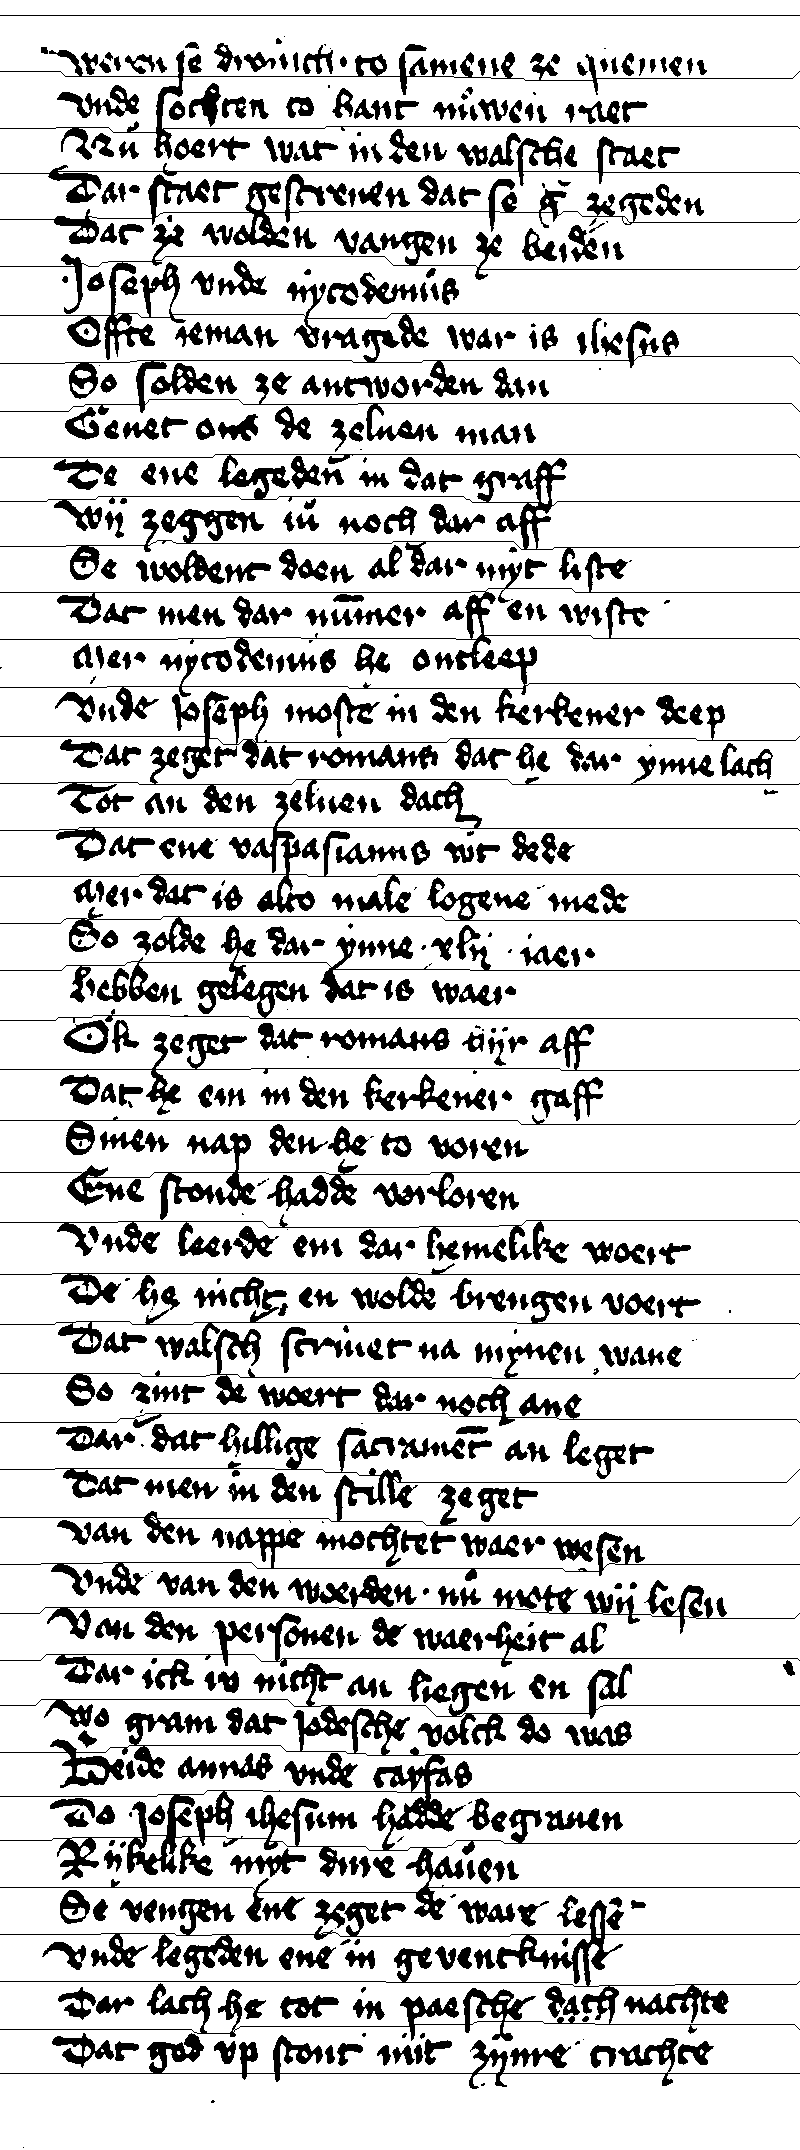 Weren se drouich· to samene ze quemen
Vnde sochten to hant nuwen raet
Nu hoert wat in den walsche staet
Dar staet gescreuen dat se g zegeden
Dat ze wolden vangen ze beiden
Joseph vnde nycodemus
Offte ieman vragede war is ihesus
So solden ze antworden dan
Geuet ons de zeluen man
De ene legeden in dat graff
Wij zeggen iu noch dar aff
Se woldent doen al dar myt liste
Dat men dar nummer aff en wiste
Mer nycodemus he ontleep
Vnde Joseph moste in den kerkener deep
Dat zeget dat romans dat he dar ynne lach
Tot an den zeluen dach
Dat ene vaspasianus wt dede
Mer dat is alto male logene mede
So zolde he dar ynne · xlij · iaer
Hebben gelegen dat is waer
Ok zeget dat romans hijr aff
Dat he em in den kerkener gaff
Sinen nap den he to voren
Ene stonde hadde vorloren
Vnde leerde em dar hemelike woert
De he nicht en wolde brengen voert
Dat walsch scriuet na mynen wane
So zint de woert dar noch ane
Dar dat hillige sacramēt an leget
Dat men in den stille zeget
Van den nappe mochtet waer wesen
Vnde van den woerden · nu mote wij lesen
Van den personen de waerheit al
Dar ick iv nicht an liegen en sal
Wo gram dat Jodesche volck do was
Beide annas vnde cayfas
Do Joseph ihesum hadde begrauen
Rijkelike myt dure hauen
Se vengen ene zeget de ware lesse
Vnde legeden ene in geuencknisse
Dar lach he tot in paesche dach nachte
Dat god vp stont mit zijnre crachte